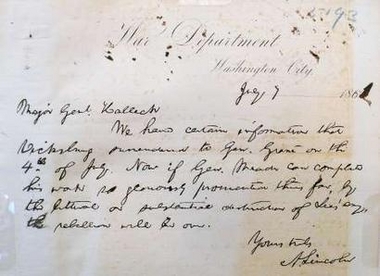 War Department
Washington City,
July 7 186
Major Genl Halleck
We have certain information that
Vicksburg surrendered to Gen. Grant on the
4th of July. Now if Gen. Meade can complete
his work so gloriously prosecuted thus far, by
the litteral or substantial destruction of Lee's army,
the rebellion will be over.
Yours truly
A. Lincoln